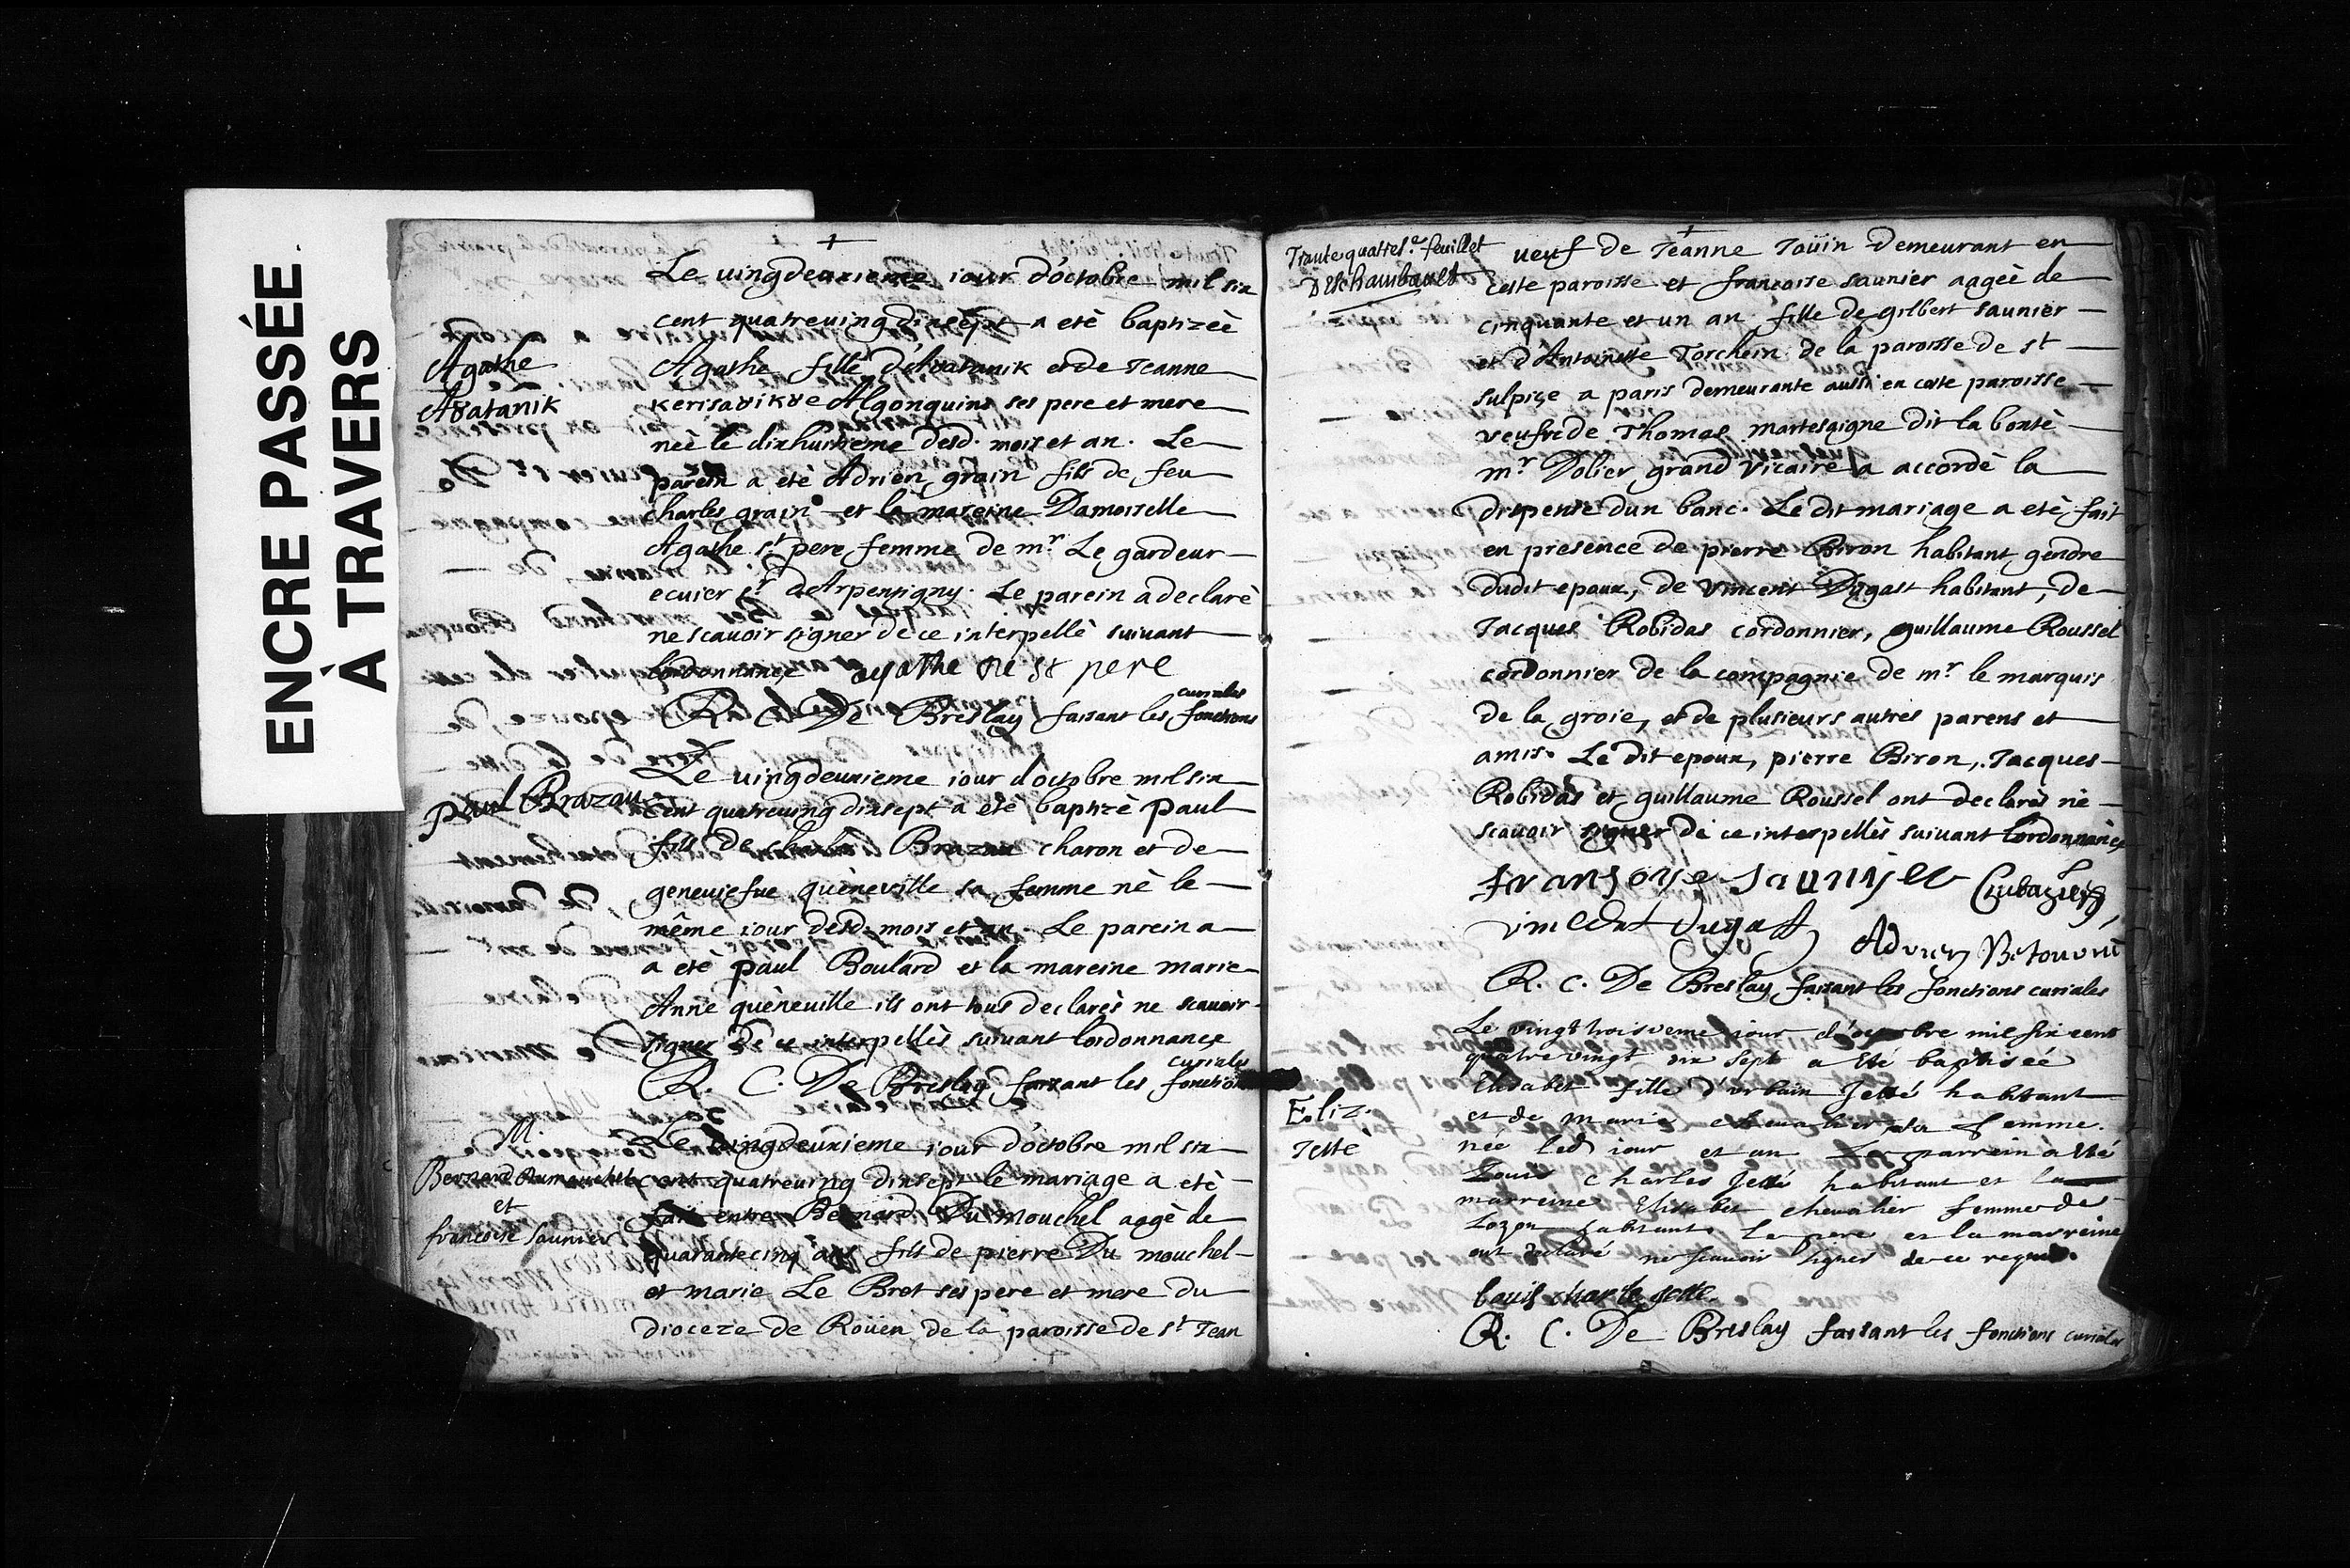 ENCRE PASSÉE
À TRAVERS
Le vingdeuxieme iour d'octobre mil six
cent quatreuing dixsept a etè baptizèè
Agathe
Aȣatanik
Agathe fille d'Aȣatanik et de Jeanne
Kerisaȣikȣe Algonquins ses pere et mere
neè le dixhuitieme desd. mois et an. Le
parein a etè Adrien grain fils de feu
charles grain et la mareine Damoiselle
Agathe st pere femme de mr Le gardeur
ecuier sr deArpentigny. Le parein a declarè
ne scauoir signer de ce interpellè suiuant
lordonnance agathe de st pere
R. C. De Breslay faisant les fonctions curiales
paul Brazau
Le vingdeuxieme iour doctobre mil six
cent quatreuing dixsept a etè baptizè paul
fils de charles Brazau charon et de
geneuiefue quèneville sa femme nè le
même iour desd. mois et an. Le parein a
a etè paul Boulard et la mareine marie
Anne quèneuille ils ont tous declarès ne scauoir
signer de ce interpellès suiuant lordonnance
R. C. De Breslay faisant les fonctions curiales
M.
Bernard Dumouchel
et
francoise Saunier
Le vingdeuxieme iour d'octobre mil six
cent quatreuing dixsept le mariage a etè
fait entre Bernard Du mouchel aggè de
quarante cinq ans fils de pierre Du mouchel
et marie Le Bret ses pere et mere du
dioceze de Roüen de la paroisse de st Jean
Trante quatres.e feuillet
Deschambault
veuf de Jeanne Joüin demeurant en
ceste paroisse et francoise saunier aggeè de
cinquante et un an fille de gilbert saunier
et d'Antoinette Torchein de la paroisse de st
sulpice a paris demeurante aussi en ceste paroisse
veufve de Thomas martesaigne dit la bontè
mr Dolier grand vicaire a accordè la
dispense dun banc. Le dit mariage a etè fait
en presence de pierre Biron habitant gendre
dudit epoux, de vincent Dugast habitant, de
Jacques Robidas cordonnier, guillaume Roussel
cordonnier de la compagnie de mr le marquis
de la groie, et de plusieurs autres parens et
amis. Le dit epoux, pierre Biron, Jacques
Robidas et guillaume Roussel ont declarès ne
scauoir signer de ce interpellès suiuant lordonnance
fransoise saunier
vincent dugast
Adrien Betourné
R. C. De Breslay faisant les fonctions curiales
Eliz.
Jettè
Le vingt troisieme iour d'octobre mil six cent
quatre vingt dix sept a Eté baptisée
Elisabet fille d'urbain Jetté habitant
et de marie chevalier sa femme.
née led iour et an Le parrein a Eté
Louis charles Jetté habitant et la
marreine Elisabet chevalier femme de
Lozon habitant. Le pere et la marreine
ont declaré ne scauoir signer de ce requis.
louis charle jette
R. C. De Breslay faisant les fonctions curiales